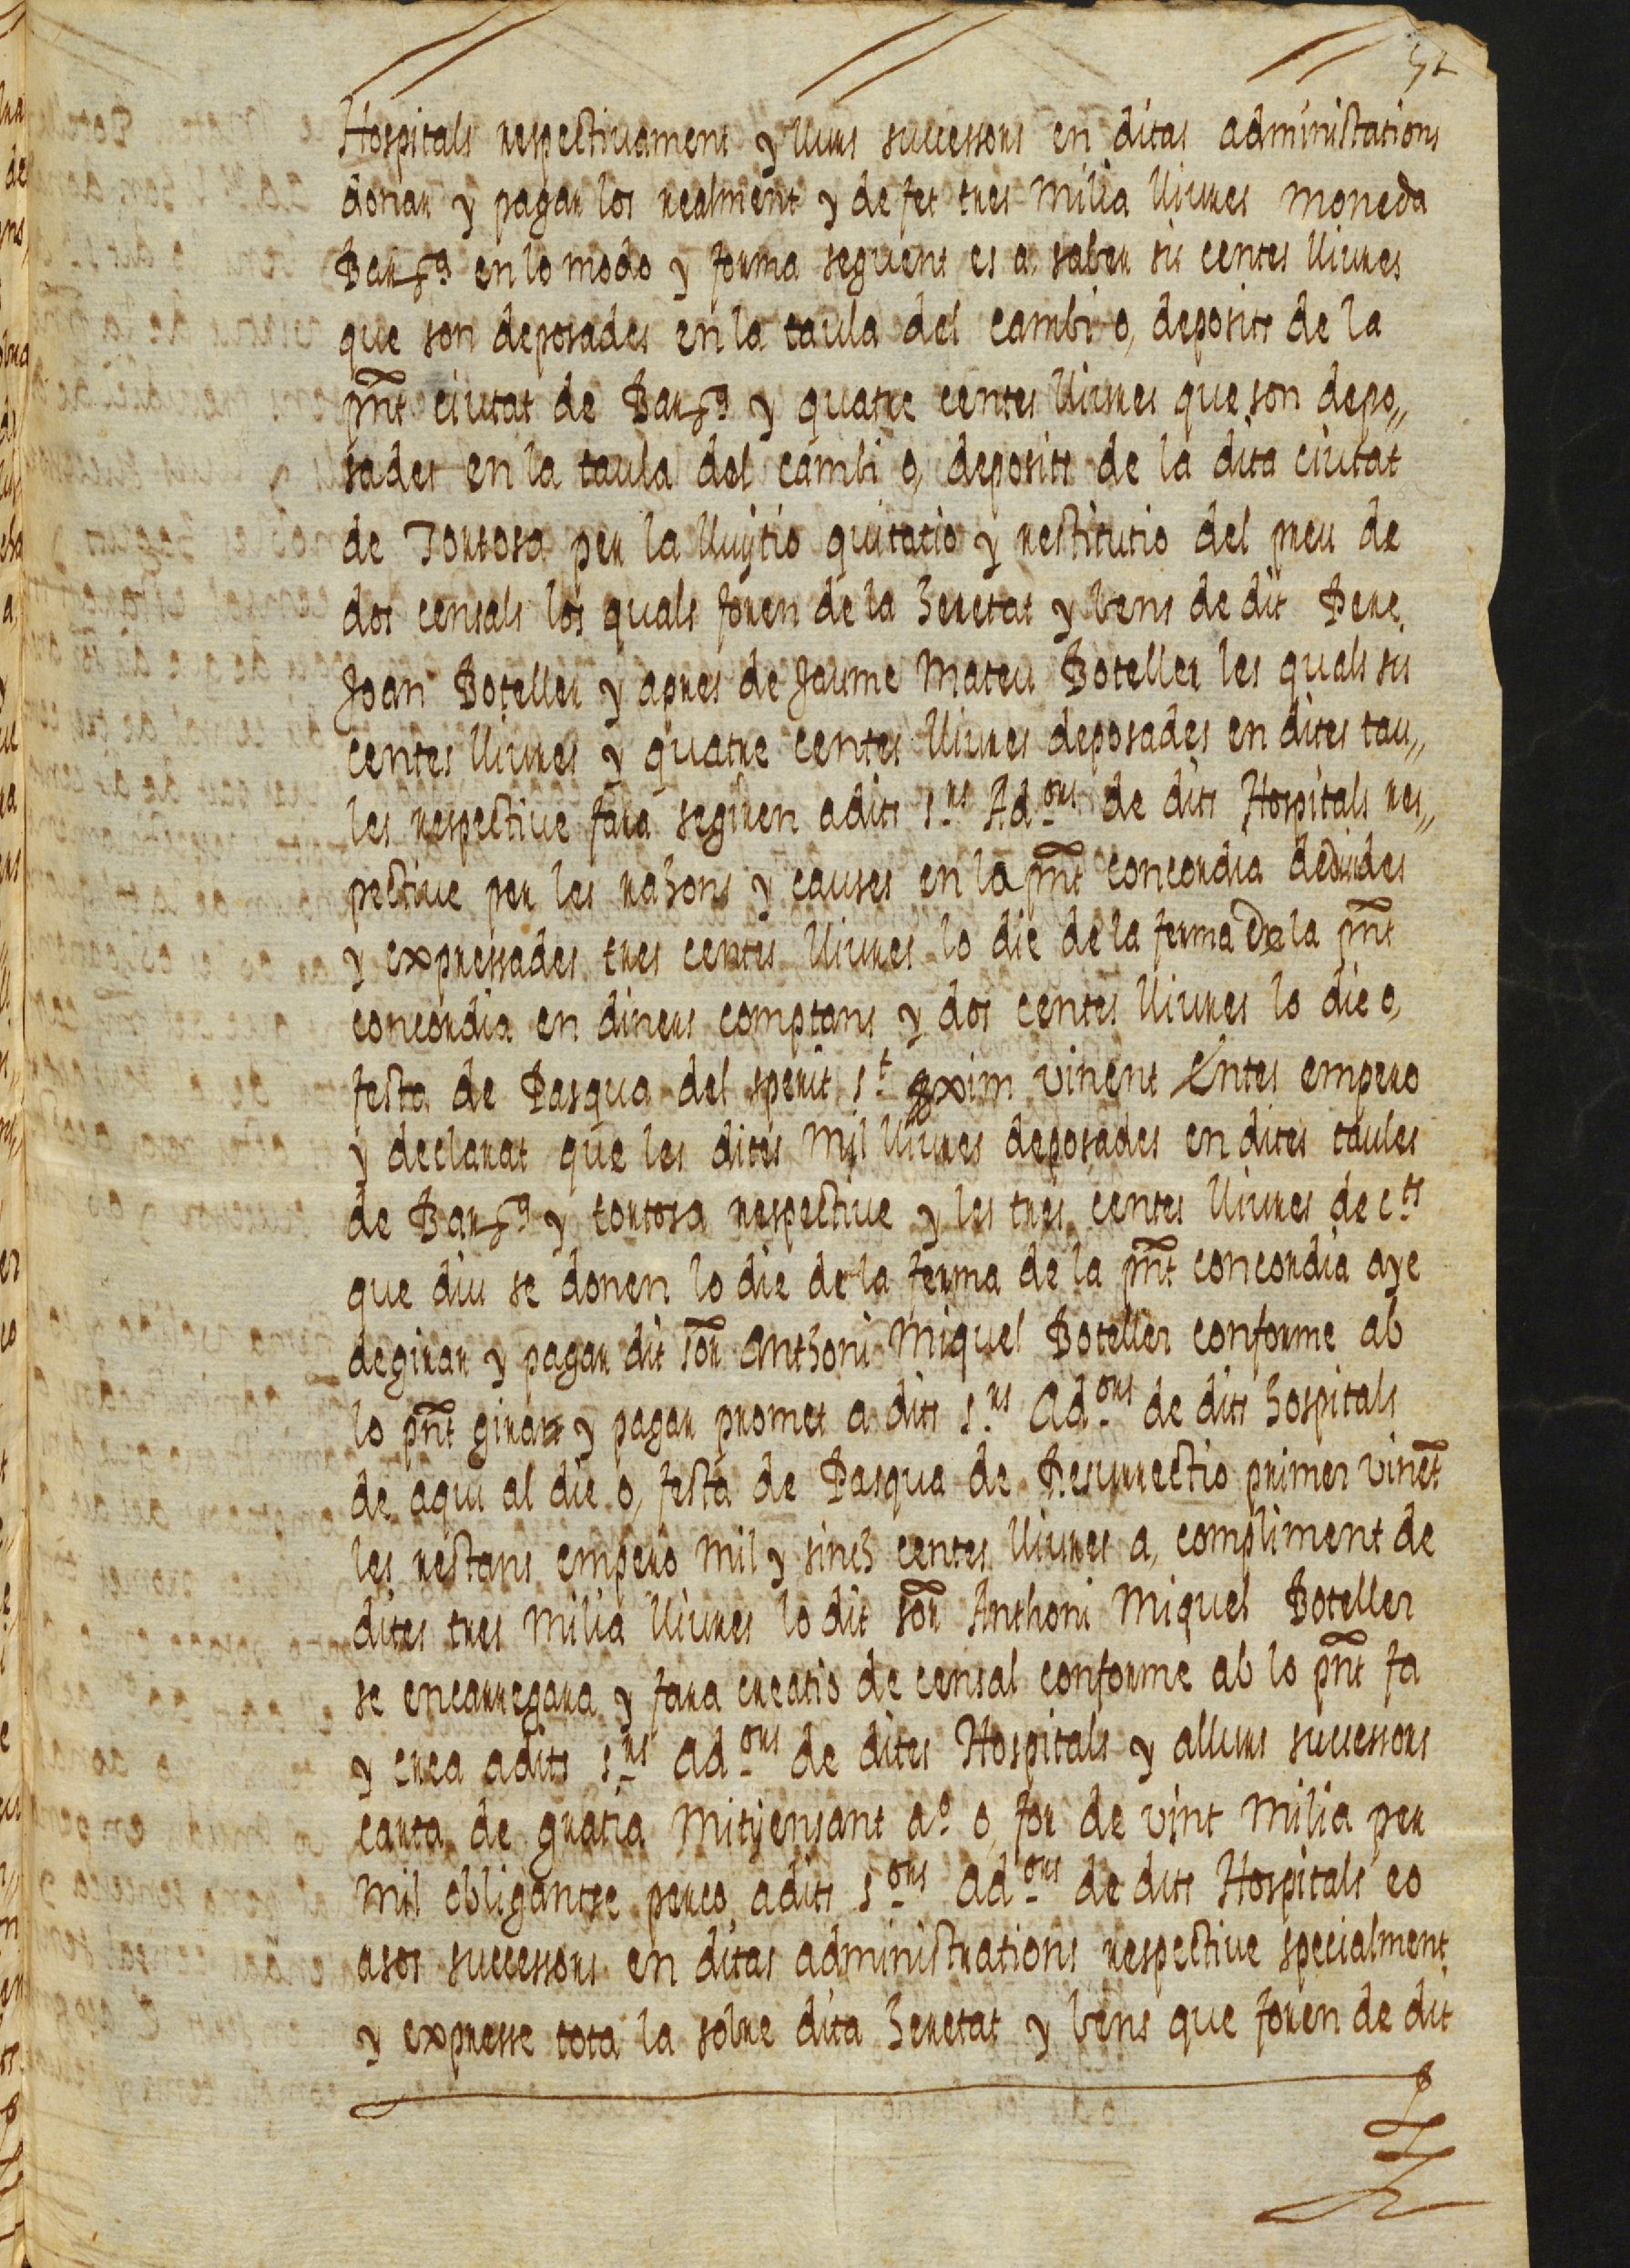 52
Hospitals respectivament y lluns successors en ditas administations
donar y pagar los realment y de fet tres milia lliures moneda
Barña en lo modo y forma seguent es a saber sis centes lliures
que son deposades en la taula del cambi o, deposits de la
pñt ciutat de Barña y quatre centes lliures que son depo„
sades en la taula del cambi o, deposits de la dita ciutat
de Tortosa per la lluytio quitatio y restitutio del preu de
dos censals los quals foren de la heretat y bens de dit Pere
Joan Boteller y apres de Jaume Mateu Boteller les quals sis
centes lliures y quatre centes lliures deposades en dites tau„
les respective fara segiren a dits s.rs Ad.ors de dits Hospitals res„
pective per les rahons y causes en la pñt concordia deduides
y expressades tres centes lliures lo die de la ferma de la pñt
concordia en diners comptans y dos centes lliures lo die o,
festa de Pasqua del sperit s.t proxim vinent Entes empero
y declarat que les dites mil lliures deposades en dites taules
de Barña y tortosa respective y les tres centes lliures de c.ts
que diu se donen lo die de la ferma de la pñt concordia aye
de girar y pagar dit sor Anthoni Miquel Boteller conforme ab
lo pñt girar y pagar promet a dits s.rs Ad.ors de dits hospitals
de aqui al die o, festa de Pasqua de Resurrectio primer vinet
les restans empero mil y sinch centes lliures a, compliment de
dites tres milia lliures lo dit sor Anthoni Miquel Boteller
se encarregara y fara creatio de censal conforme ab lo pñt fa
y crea a dits s.rs Ad.ors de dites Hospitals y a lluns successors
carta de gratia mitjensant a.o o, for de vint milia per
mil obligantse perço a dits s.ors Ad.ors de dits Hospitals eo
a sos successors en ditas administrations respective specialment
y expresse tota la sobre dita heretat y bens que foren de dit